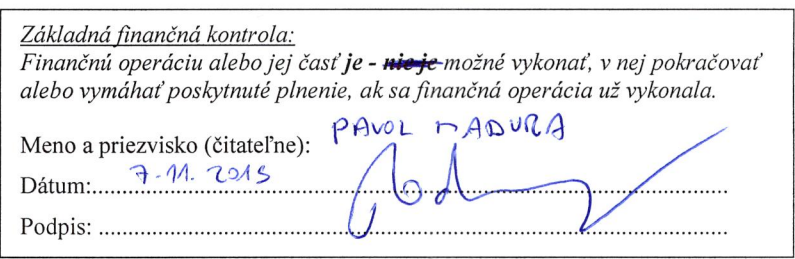 Základná finančná kontrola:
Finančnú operáciu alebo jej časť je - nie je možné vykonať, v nej pokračovať
alebo vymáhať poskytnuté plnenie, ak sa finančná operácia už vykonala.
Meno a priezvisko (čitateľne): PAVOL MADURA
Dátum: 7.11.2015
Podpis: